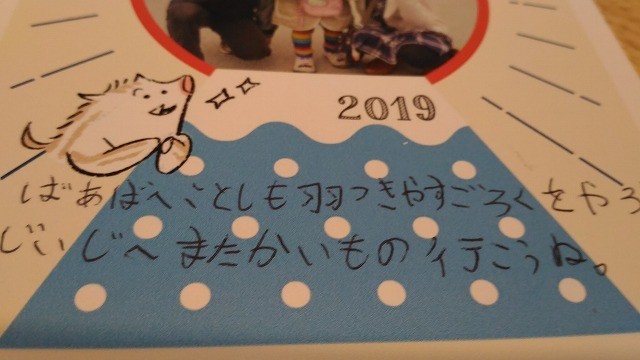 2019
ばあばへことしも羽つきやすごろくをやろ
じいじへまたかいもの行こうね。